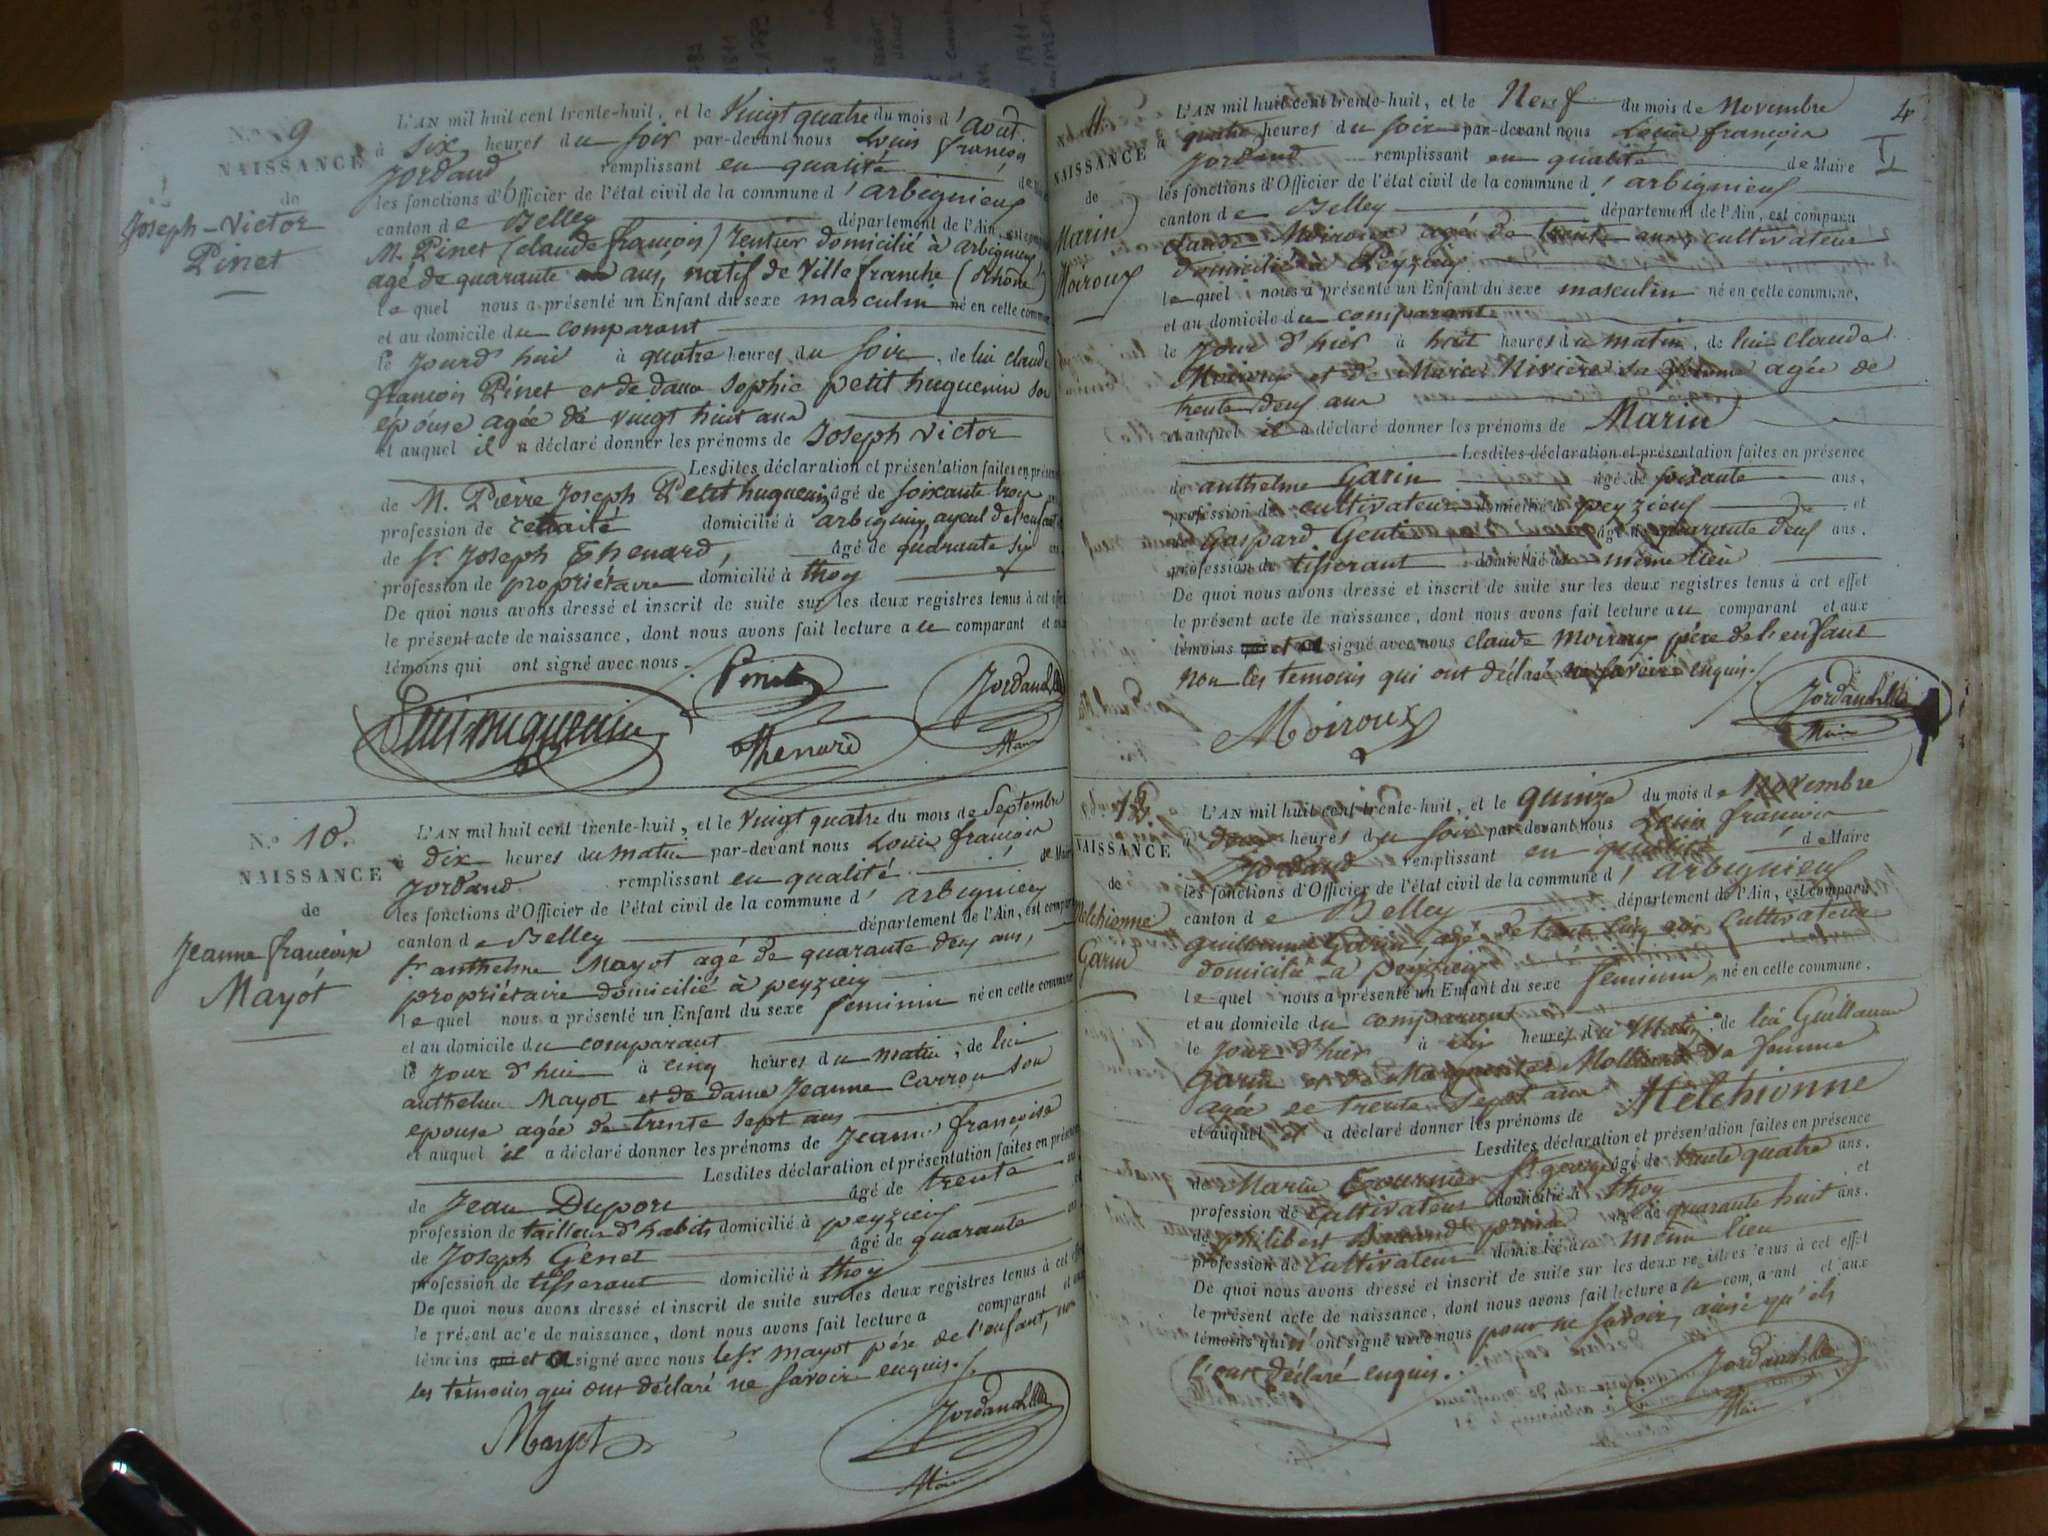 No 9
NAISSANCE
de
Joseph-Victor
Pinet
L'AN mil huit cent trente-huit, et le Vingt quatre du mois d'août
à six heures du soir par-devant nous Louis françois
Jordand remplissant en qualité de
les fonctions d'Officier de l'état civil de la commune d'arbignieu
canton de Belley département de l'Ain, est
M. Pinet (claude françois) rentier domicilié à arbignieu
agé de quarante ans, natif de Villefranche (Rhône)
lequel nous a présenté un Enfant du sexe masculin né en cette commune
et au domicile du comparant
le jourd'hui à quatre heures du soir, de lui claude
françois Pinet et de dame Sophie petit huguenin son
épouse agée de vingt huit ans
et auquel il a déclaré donner les prénoms de Joseph Victor
Lesdites déclaration et présentation faites en
de M. Pierre Joseph Petit huguenin âgé de soixante trois
profession de retraité domicilié à arbignieu, ayeul de l'enfant
de Sr Joseph Thenard, âgé de quarante six
profession de propriétaire domicilié à thoy
De quoi nous avons dressé et inscrit de suite sur les deux registres tenus à cet effet
le présent acte de naissance, dont nous avons fait lecture au comparant et aux
témoins qui ont signé avec nous.
Pinet
Jordand
Petit huguenin
Thenard
Maire
No 10.
NAISSANCE
de
Jeanne françoise
Mayot
L'AN mil huit cent trente-huit, et le Vingt quatre du mois de Septembre
à Dix heures du matin par-devant nous Louis françois
Jordand remplissant en qualité de Maire
les fonctions d'Officier de l'état civil de la commune d'arbignieu
canton de Belley département de l'Ain, est
Sr anthelme Mayot agé de quarante deux ans,
propriétaire domicilié à peyzieu
lequel nous a présenté un Enfant du sexe feminin né en cette commune
et au domicile du comparant
le jour d'hui à cinq heures du matin, de lui
anthelme Mayot et de dame Jeanne Carron son
epouse agée de trente sept ans
et auquel il a déclaré donner les prénoms de Jeanne françoise
Lesdites déclaration et présentation faites en
de Jean Dupon âgé de trente
profession de tailleur d'habits domicilié à peyzieu
de Joseph Genet âgé de quarante
profession de tisserant domicilié à thoy
De quoi nous avons dressé et inscrit de suite sur les deux registres tenus à cet effet
le présent acte de naissance, dont nous avons fait lecture a comparant et aux
témoins et a signé avec nous le Sr mayot père de l'enfant, non
les témoins qui ont déclaré ne savoir enquis.
Mayot
Jordand
Maire
4
11
NAISSANCE
de
Marin
Moiroux
L'AN mil huit cent trente-huit, et le Neuf du mois de Novembre
à quatre heures du soir par-devant nous Louis françois
Jordand remplissant en qualité de Maire
les fonctions d'Officier de l'état civil de la commune d'arbignieu
canton de Belley département de l'Ain, est comparu
claude Moiroux agé de trente ans, cultivateur
domicilié à Peyzieu
lequel nous a présenté un Enfant du sexe masculin né en cette commune,
et au domicile du comparant
le jour d'hier à huit heures du matin, de lui claude
Moiroux et de Marie Rivière sa femme agée de
trente deux ans
et auquel il a déclaré donner les prénoms de Marin
Lesdites déclaration et présentation faites en présence
de anthelme Garin âgé de soixante ans,
profession de cultivateur domicilié à peyzieu et
Gaspard Genti âgé de quarante deux ans,
profession de tisserant domicilié au même lieu
De quoi nous avons dressé et inscrit de suite sur les deux registres tenus à cet effet
le présent acte de naissance, dont nous avons fait lecture au comparant et aux
témoins et a signé avec nous claude moiroux père de l'enfant
non les temoins qui ont déclaré ne savoir enquis.
Moiroux
Jordand
Maire
12.
NAISSANCE
de
Melchionne
Garin
L'AN mil huit cent trente-huit, et le quinze du mois de Novembre
à deux heures du soir par-devant nous Louis françois
Jordand remplissant en qualité de Maire
les fonctions d'Officier de l'état civil de la commune d'arbignieu
canton de Belley département de l'Ain, est comparu
guillaume Garin, agé de trente cinq ans, Cultivateur
domicilié à peyzieu
lequel nous a présenté un Enfant du sexe feminin, né en cette commune,
et au domicile du comparant
le jour d'hier à six heures du Matin, de lui Guillaume
Garin et de Marguerite sa femme
agée de trente sept ans
et auquel il a déclaré donner les prénoms de Melchionne
Lesdites déclaration et présentation faites en présence
de Marin Fournier St george âgé de trente quatre ans,
profession de Cultivateur domicilié à thoy et
de philibert âgé de quarante huit ans.
profession de Cultivateur domicilié au même lieu
De quoi nous avons dressé et inscrit de suite sur les deux registres tenus à cet effet
le présent acte de naissance, dont nous avons fait lecture au comparant et aux
témoins qui n'ont signé avec nous pour ne savoir, ainsi qu'ils
l'ont déclaré enquis.
Jordand
Maire